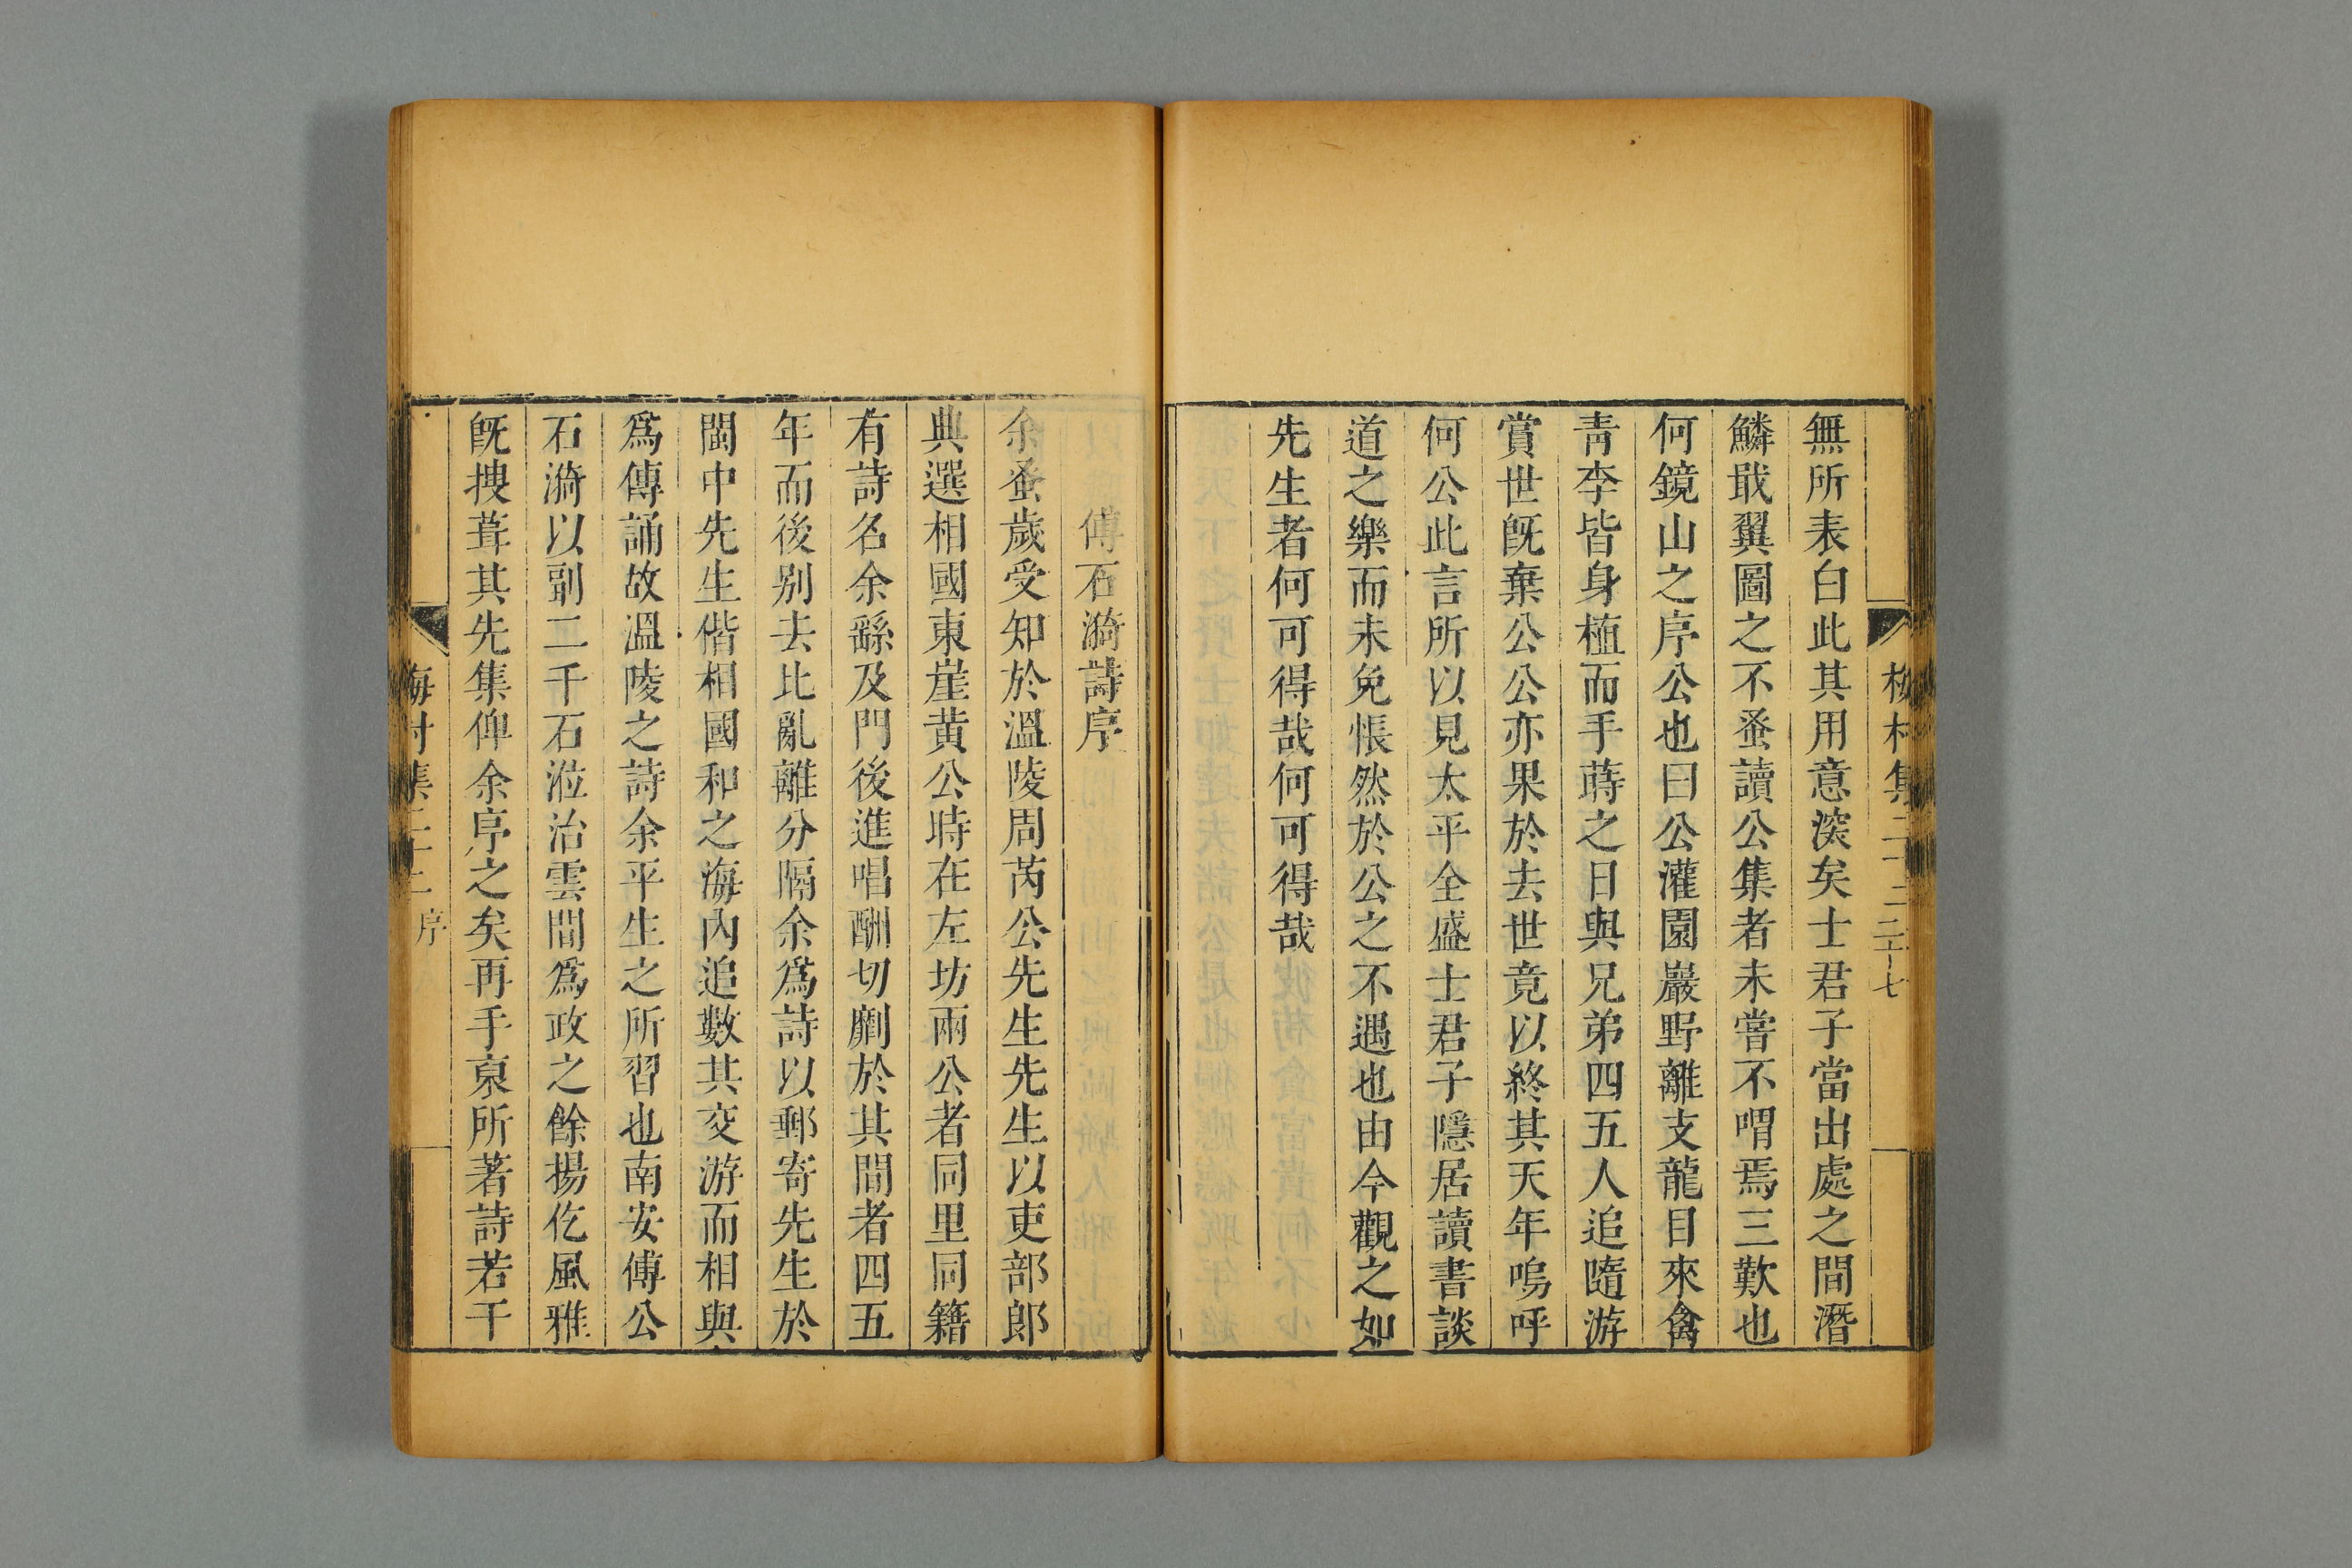 梅村集二十二 二十七
無所表白此其用意深矣士君子當出處之間潛
鱗戢翼圖之不蚤讀公集者未嘗不喟焉三歎也
何鏡山之序公也曰公灌園巖野離支龍目來禽
青李皆身植而手蒔之日與兄弟四五人追隨游
賞世旣棄公公亦果於去世竟以終其天年嗚呼
何公此言所以見太平全盛士君子隱居讀書談
道之樂而未免悵然於公之不遇也由今觀之如
先生者何可得哉何可得哉
傅石漪詩序
余蚤歲受知於溫陵周芮公先生先生以吏部郎
典選相國東崖黃公時在左坊兩公者同里同籍
有詩名余繇及門後進唱酬切劘於其間者四五
年而後别去比亂離分隔余爲詩以郵寄先生於
閩中先生偕相國和之海內追數其交游而相與
爲傳誦故溫陵之詩余平生之所習也南安傅公
石漪以副二千石涖治雲間爲政之餘揚仡風雅
旣搜葺其先集俾余序之矣再手裒所著詩若干
梅村集二十二 序